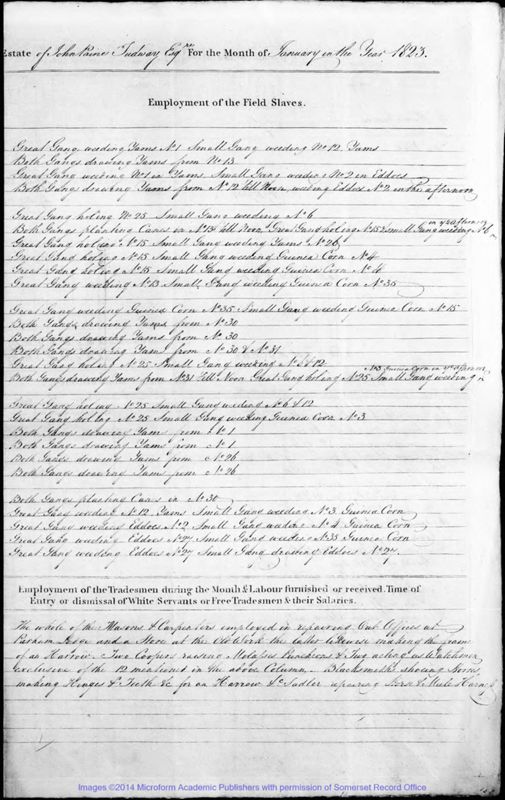 Estate of John Paine Tudway Esqre For the Month of January in the Year 1823.
Employment of the Field Slaves.
Great Gang weeding Yams No 1 Small Gang weeding No 12 Yams
Both Gangs drawing Yams from No 13
Great Gang weeding No 1 in Yams Small Gang weeding No 2 in Eddoes
Both Gangs drawing Yams from No 12 till Noon, weeding Eddoes No 2 in the afternoon
Great Gang holing No 25 Small Gang weeding No 6
Both Gangs planting Canes in No 13 till Noon Great Gang holing No 15 & Small Gang weeding No 6 in ye afternoon
Great Gang holing No 15 Small Gang weeding Yams No 26
Great Gang holing No 15 Small Gang weeding Guinea Corn No 4
Great Gang holing No 15 Small Gang weeding Guinea Corn No 4
Great Gang weeding No 15 Small Gang weeding Guinea Corn No 35
Great Gang weeding Guinea Corn No 35 Small Gang weeding Guinea Corn No 15
Both Gangs drawing Yams from No 30
Both Gangs drawing Yams from No 30
Both Gangs drawing Yams from No 30 & No 31
Great Gang holing No 25 Small Gang weeding No 6 & 12
Both Gangs drawing Yams from No 31 till Noon Great Gang holing No 25 Small Gang weeding in No 3 Guinea Corn in ye afternoon
Great Gang holing No 25 Small Gang weeding No 6 & 12
Great Gang holing No 25 Small Gang weeding Guinea Corn No 3
Both Gangs drawing Yams from No 1
Both Gangs drawing Yams from No 1
Both Gangs drawing Yams from No 26
Both Gangs drawing Yams from No 26
Both Gangs planting Canes in No 30
Great Gang weeding No 12 Yams Small Gang weeding No 3 Guinea Corn
Great Gang weeding Eddoes No 2 Small Gang weeding No 4 Guinea Corn
Great Gang weeding Eddoes No 27 Small Gang weeding No 35 Guinea Corn
Great Gang weeding Eddoes No 27 Small Gang drawing Eddoes No 27
Employment of the Tradesmen during the Month & Labour furnished or received. Time of
Entry or dismissal of White Servants or Free Tradesmen & their Salaries.
The whole of the Masons & Carpenters employed in repairing Out Offices at
Parham Lodge and a Store at the Old Work the latter likewise making the frame
of an Harrow. Two Coopers raising Molasses Puncheons & Two acting as Watchmen
exclusive of the 12 mentioned in the above Column. Blacksmiths shoeing Horses
making Hinges & Teeth &c for an Harrow &c Sadler repairing Horse & Mule Harness
Images ©2014 Microform Academic Publishers with permission of Somerset Record Office